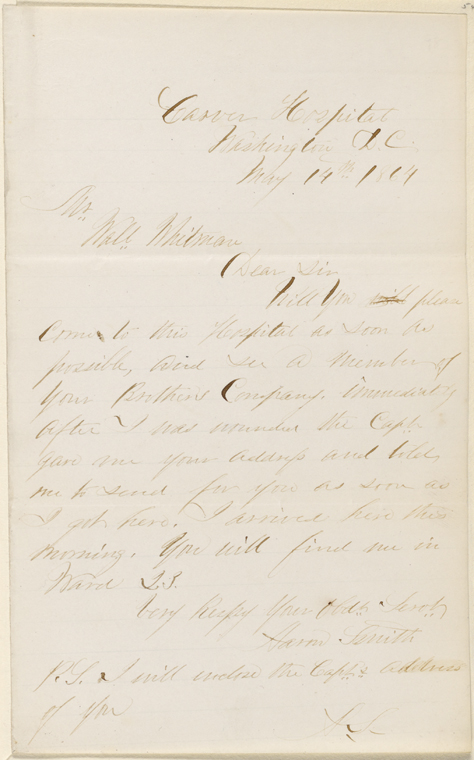 Carver Hospital
Washington D.C.
May 14th 1864
Mr.
Walt Whitman
Dear Sir
Will You will please
Come to this Hospital as soon as
possible, and see a Member of
Your Brothers Company. immediately
after I was wounded the Capt.
gave me your address and told
me to send for you as soon as
I got here. I arrived here this
morning. You will find me in
Ward 23.
Very Respy Your Obdt. Servt,
Aaron Smith
P.S. I will enclose the Capts address
of you
A.S.